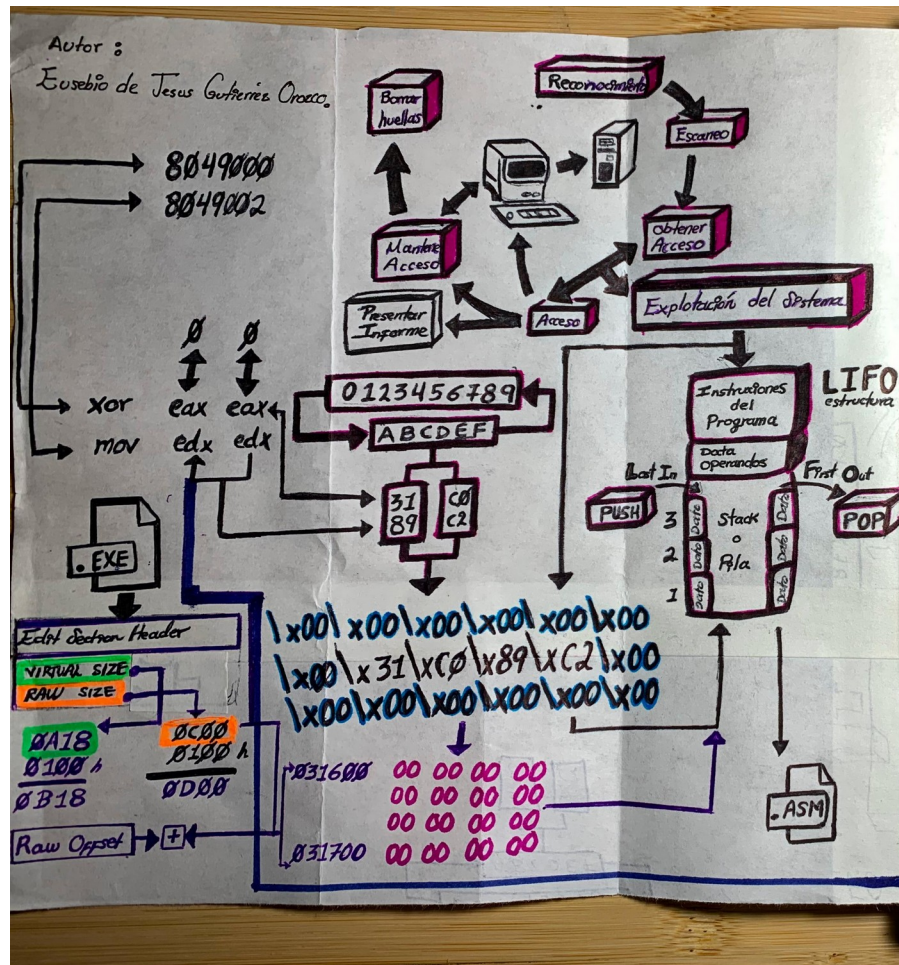 Autor :
Eusebio de Jesus Gutierrez Orozco.
8049000
8049002
Borrar
huellas
Reconocimiento
Escaneo
Obtener
Acceso
Mantene
Acceso
Presentar
Informe
Acceso
Explotación del Sistema
0 0
xor eax eax
mov edx edx
0123456789
ABCDEF
31 C0
89 C2
LIFO
estructura
Instruciones
del
Programa
Data
operandos
Last In
First Out
PUSH
POP
3 Dato
2 Dato
1 Dato
Stack
o
Pila
Dato
Dato
Dato
.EXE
Edit Section Header
VIRTUAL SIZE
RAW SIZE
0A18
0100 h
0B18
0C00
0100 h
0D00
Raw Offset +
\x00\x00\x00\x00\x00\x00
\x00\x31\xC0\x89\xC2\x00
\x00\x00\x00\x00\x00\x00
031600 00 00 00 00
00 00 00 00
00 00 00 00
031700 00 00 00 00
.ASM